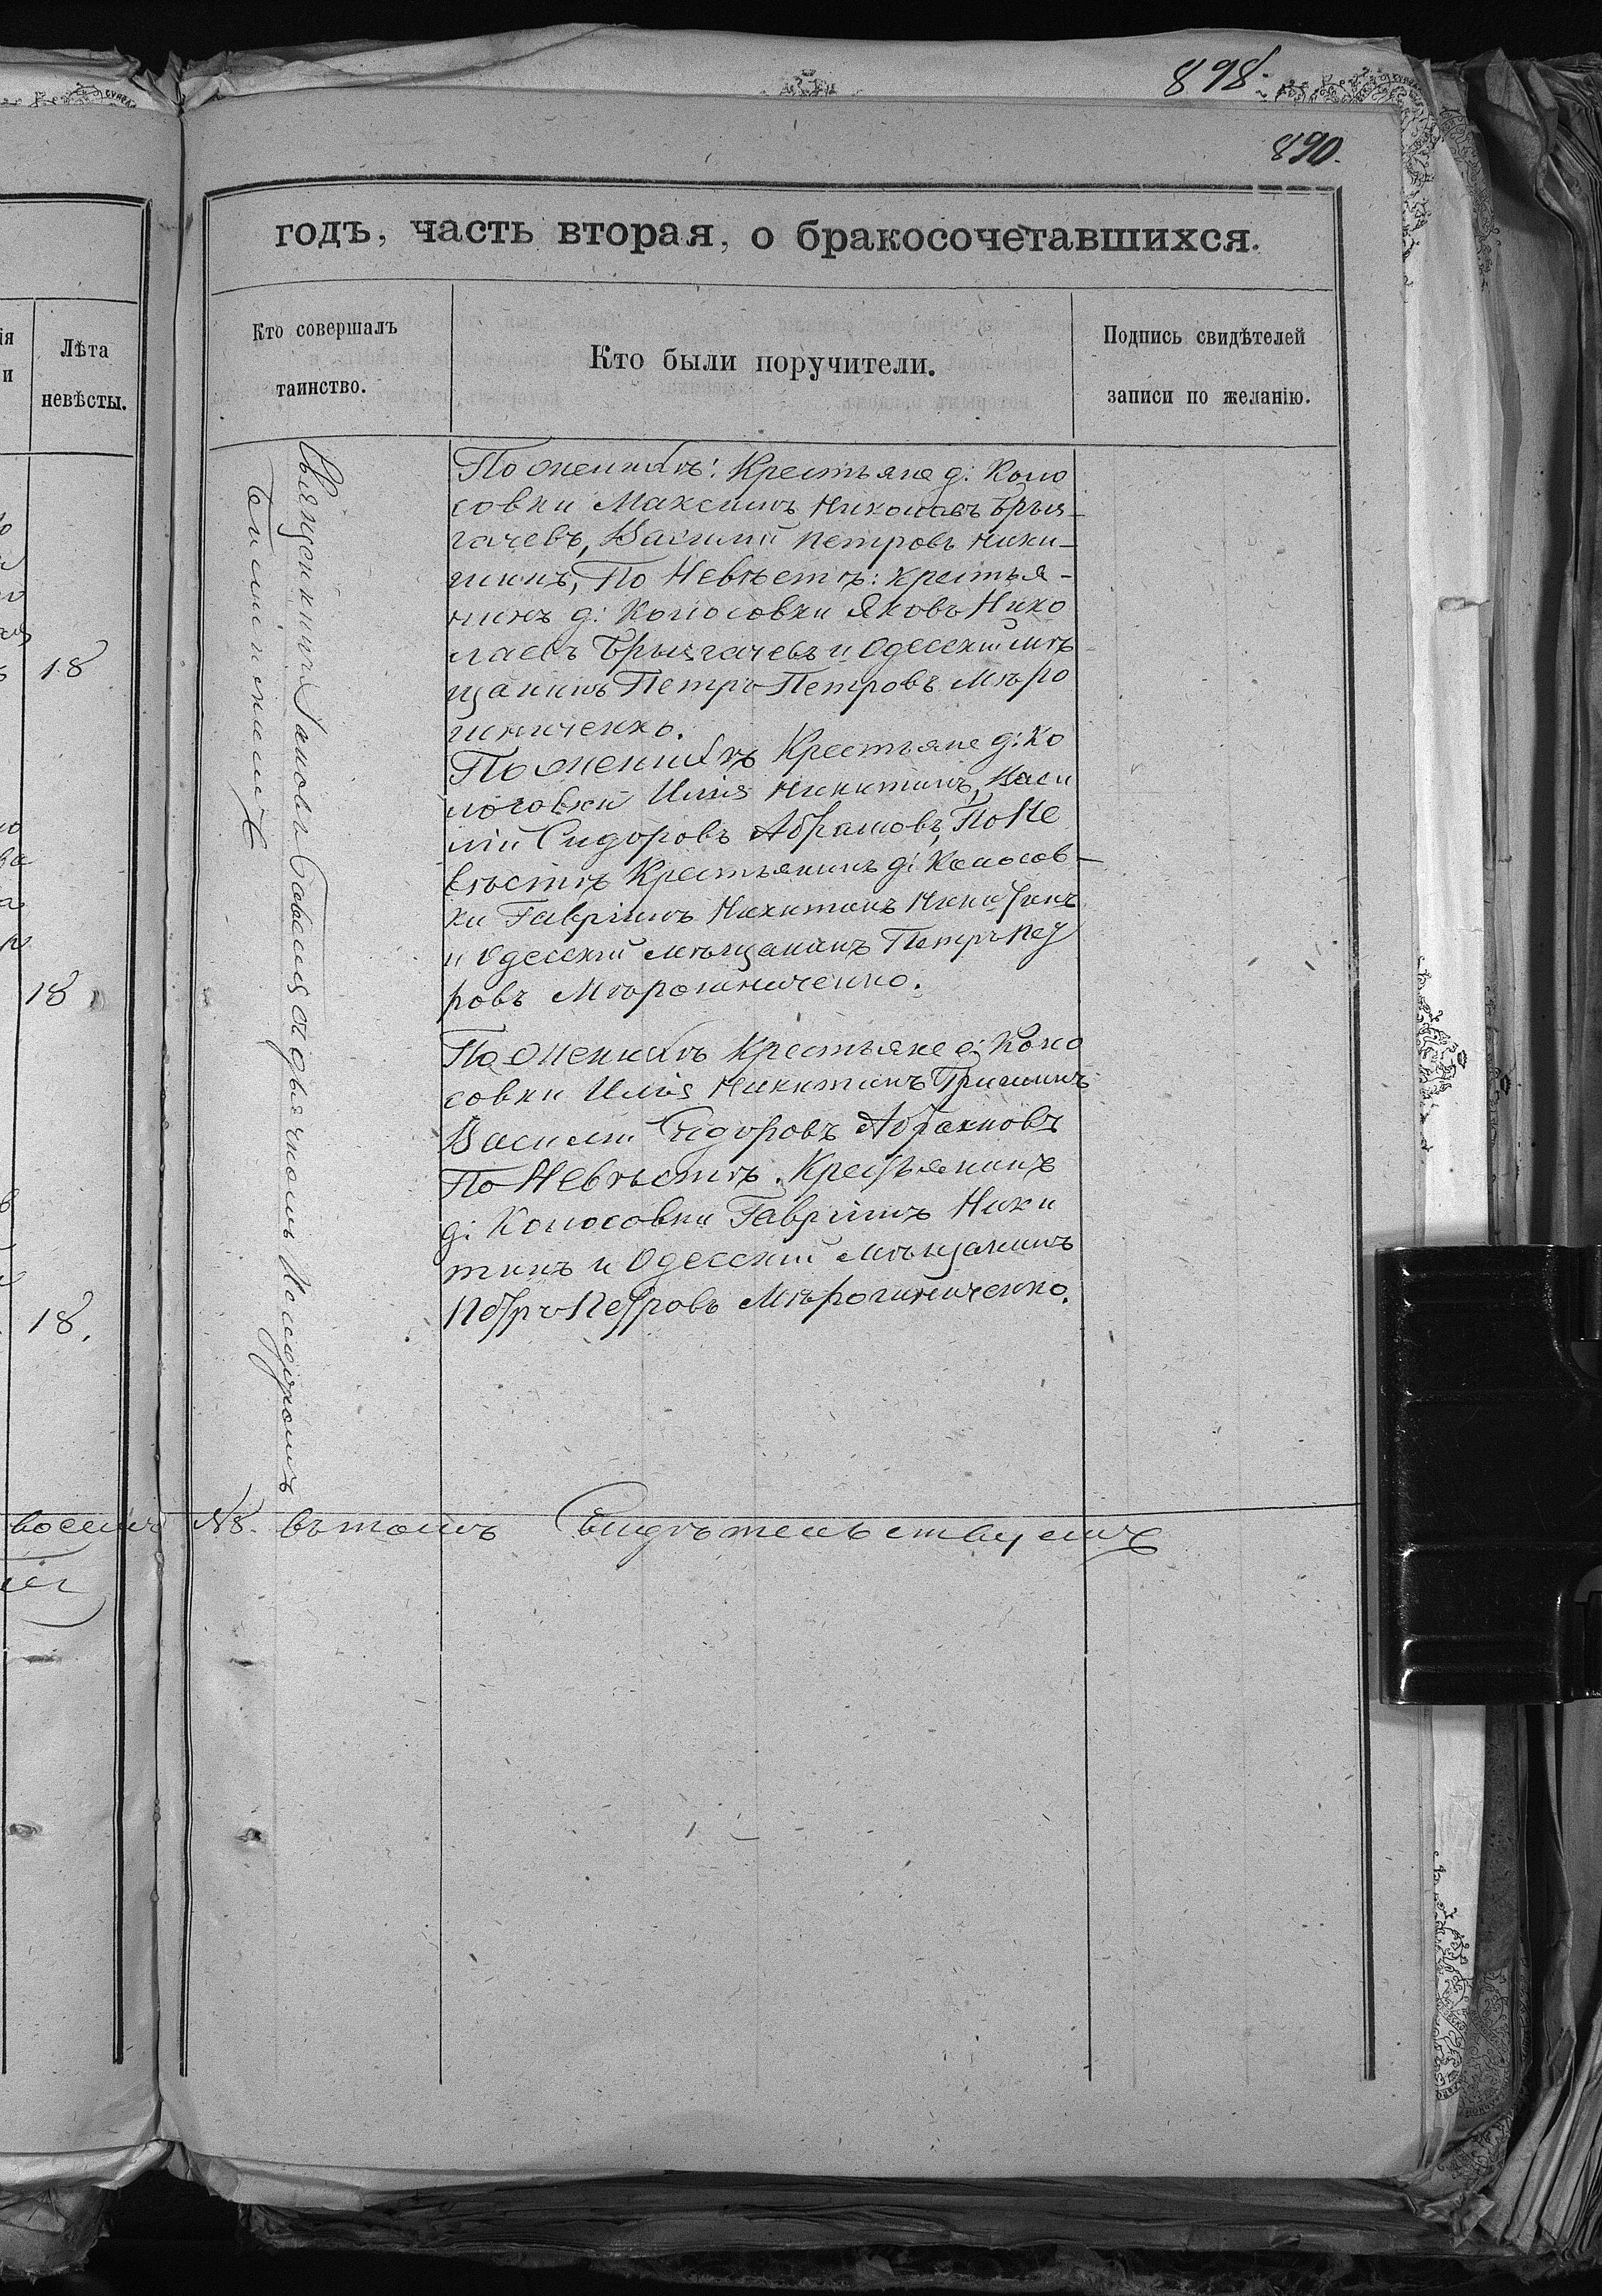 898.
890.
годъ, часть вторая, о бракосочетавшихся.
ія
и
Лѣта
невѣсты.
Кто совершалъ
таинство.
Кто были поручители.
Подпись свидѣтелей
записи по желанію.
18
18
18.
Священникомъ Іаковъ съ дьячкомъ
По женихѣ: Крестьяне д: Коло
совки Максимъ Николаевъ Брыз-
гачевъ, Василій Петровъ Ники-
тинъ, По Невѣстѣ: крестья-
нинъ д: Колосовки Яковъ Нико
лаевъ Брызгачевъ и Одесскій мѣ
щанинъ Петръ Петровъ Мѣро
шниченко.
По женихѣ Крестьяне д: Ко
лосовки Илія Никитинъ, Васи
лій Сидоровъ Абрамовъ, По Не
вѣстѣ Крестьянинъ д: Колосов-
ки Гавріилъ Никитинъ
и Одесскій мѣщанинъ Петръ Пет
ровъ Мѣрошниченко.
По женихѣ Крестьяне д: Коло
совки Илія Никитинъ Гришинъ
Василій Сидоровъ Абрамовъ
По Невѣстѣ. Крестьянинъ
д: Колосовки Гавріилъ Ники
тинъ и Одесскій мѣщанинъ
Петръ Петровъ Мѣрошниченко.
восемь №8. въ томъ Свидѣтельствуемъ